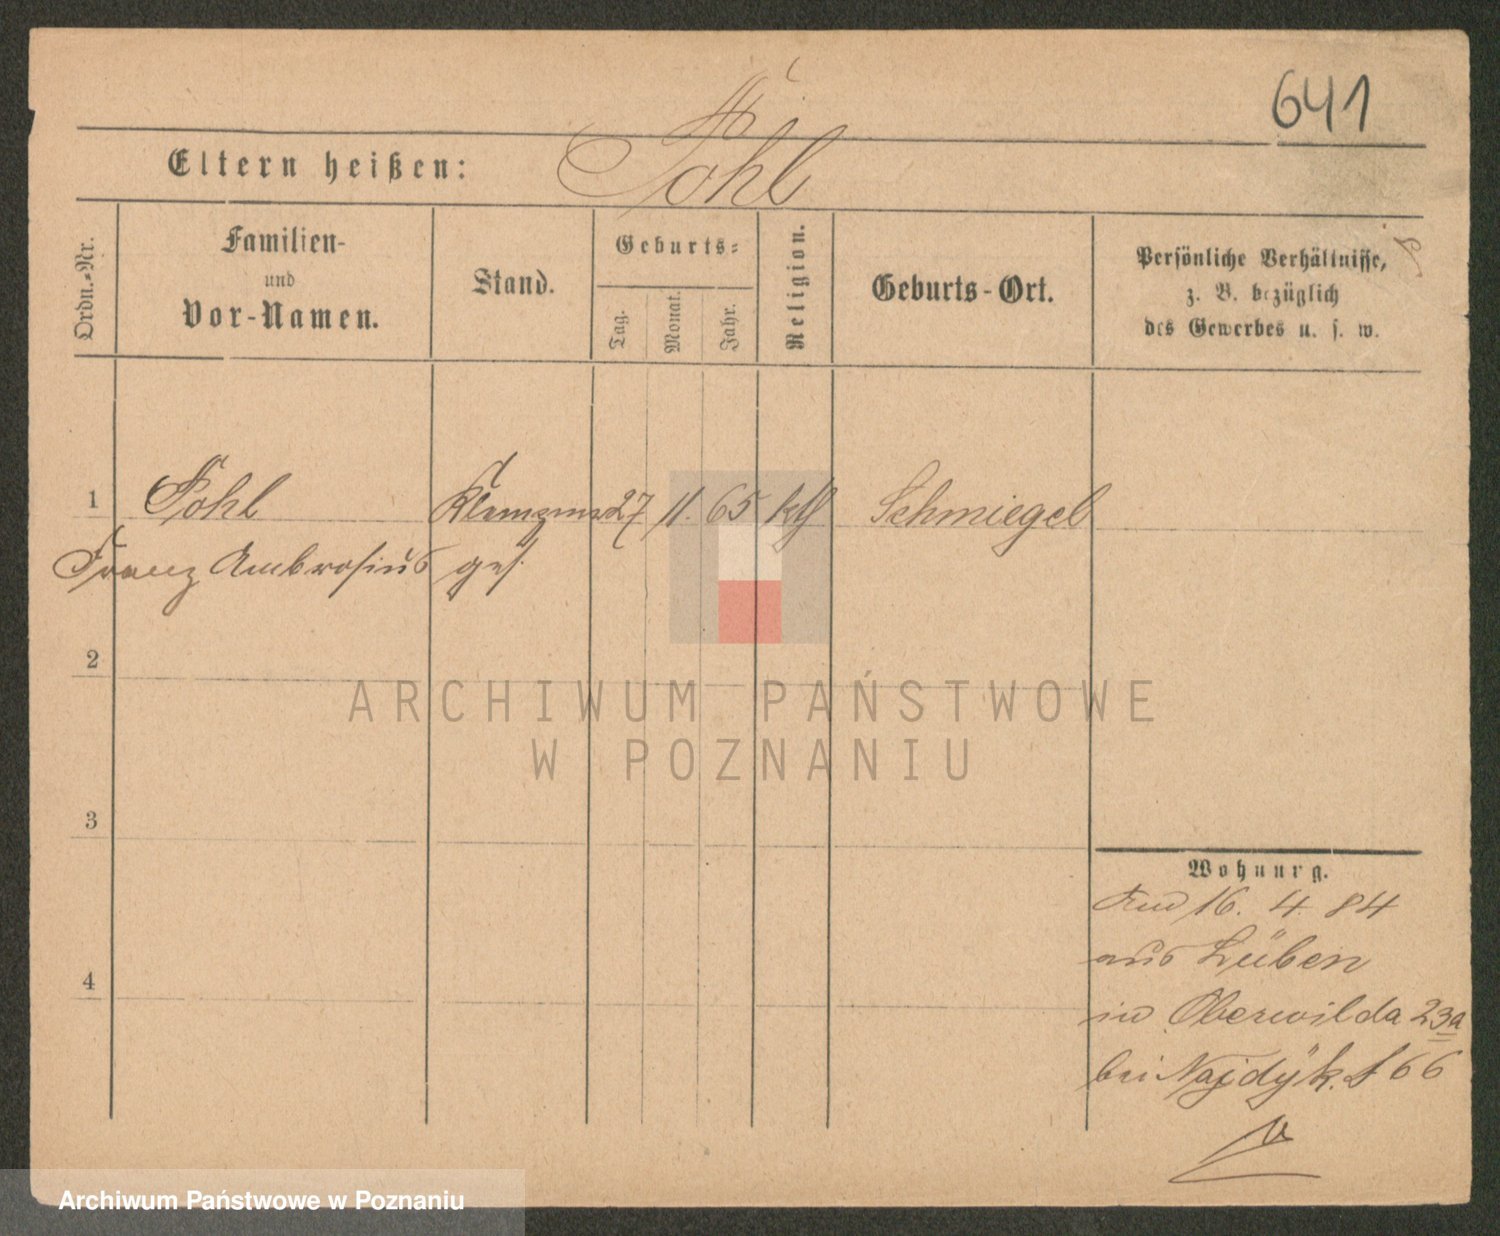 641
Pohl
Eltern heißen:
Ordn.-Nr.
Familien-
und
Vor-Namen.
Stand.
Geburts-
Tag.
Monat.
Jahr.
Religion.
Geburts-Ort.
Persönliche Verhältnisse,
z. B. bezüglich
des Gewerbes u. s. w.
1 Pohl Klempner 27 11. 65 kth Schmiegel
Franz Ambrosius ges.
2
ARCHIWUM PAŃSTWOWE
W POZNANIU
3
Wohnung.
16. 4. 84
aus Lüben
in Oberwilda 23a
bei Najdyk. 66
4
Archiwum Państwowe w Poznaniu